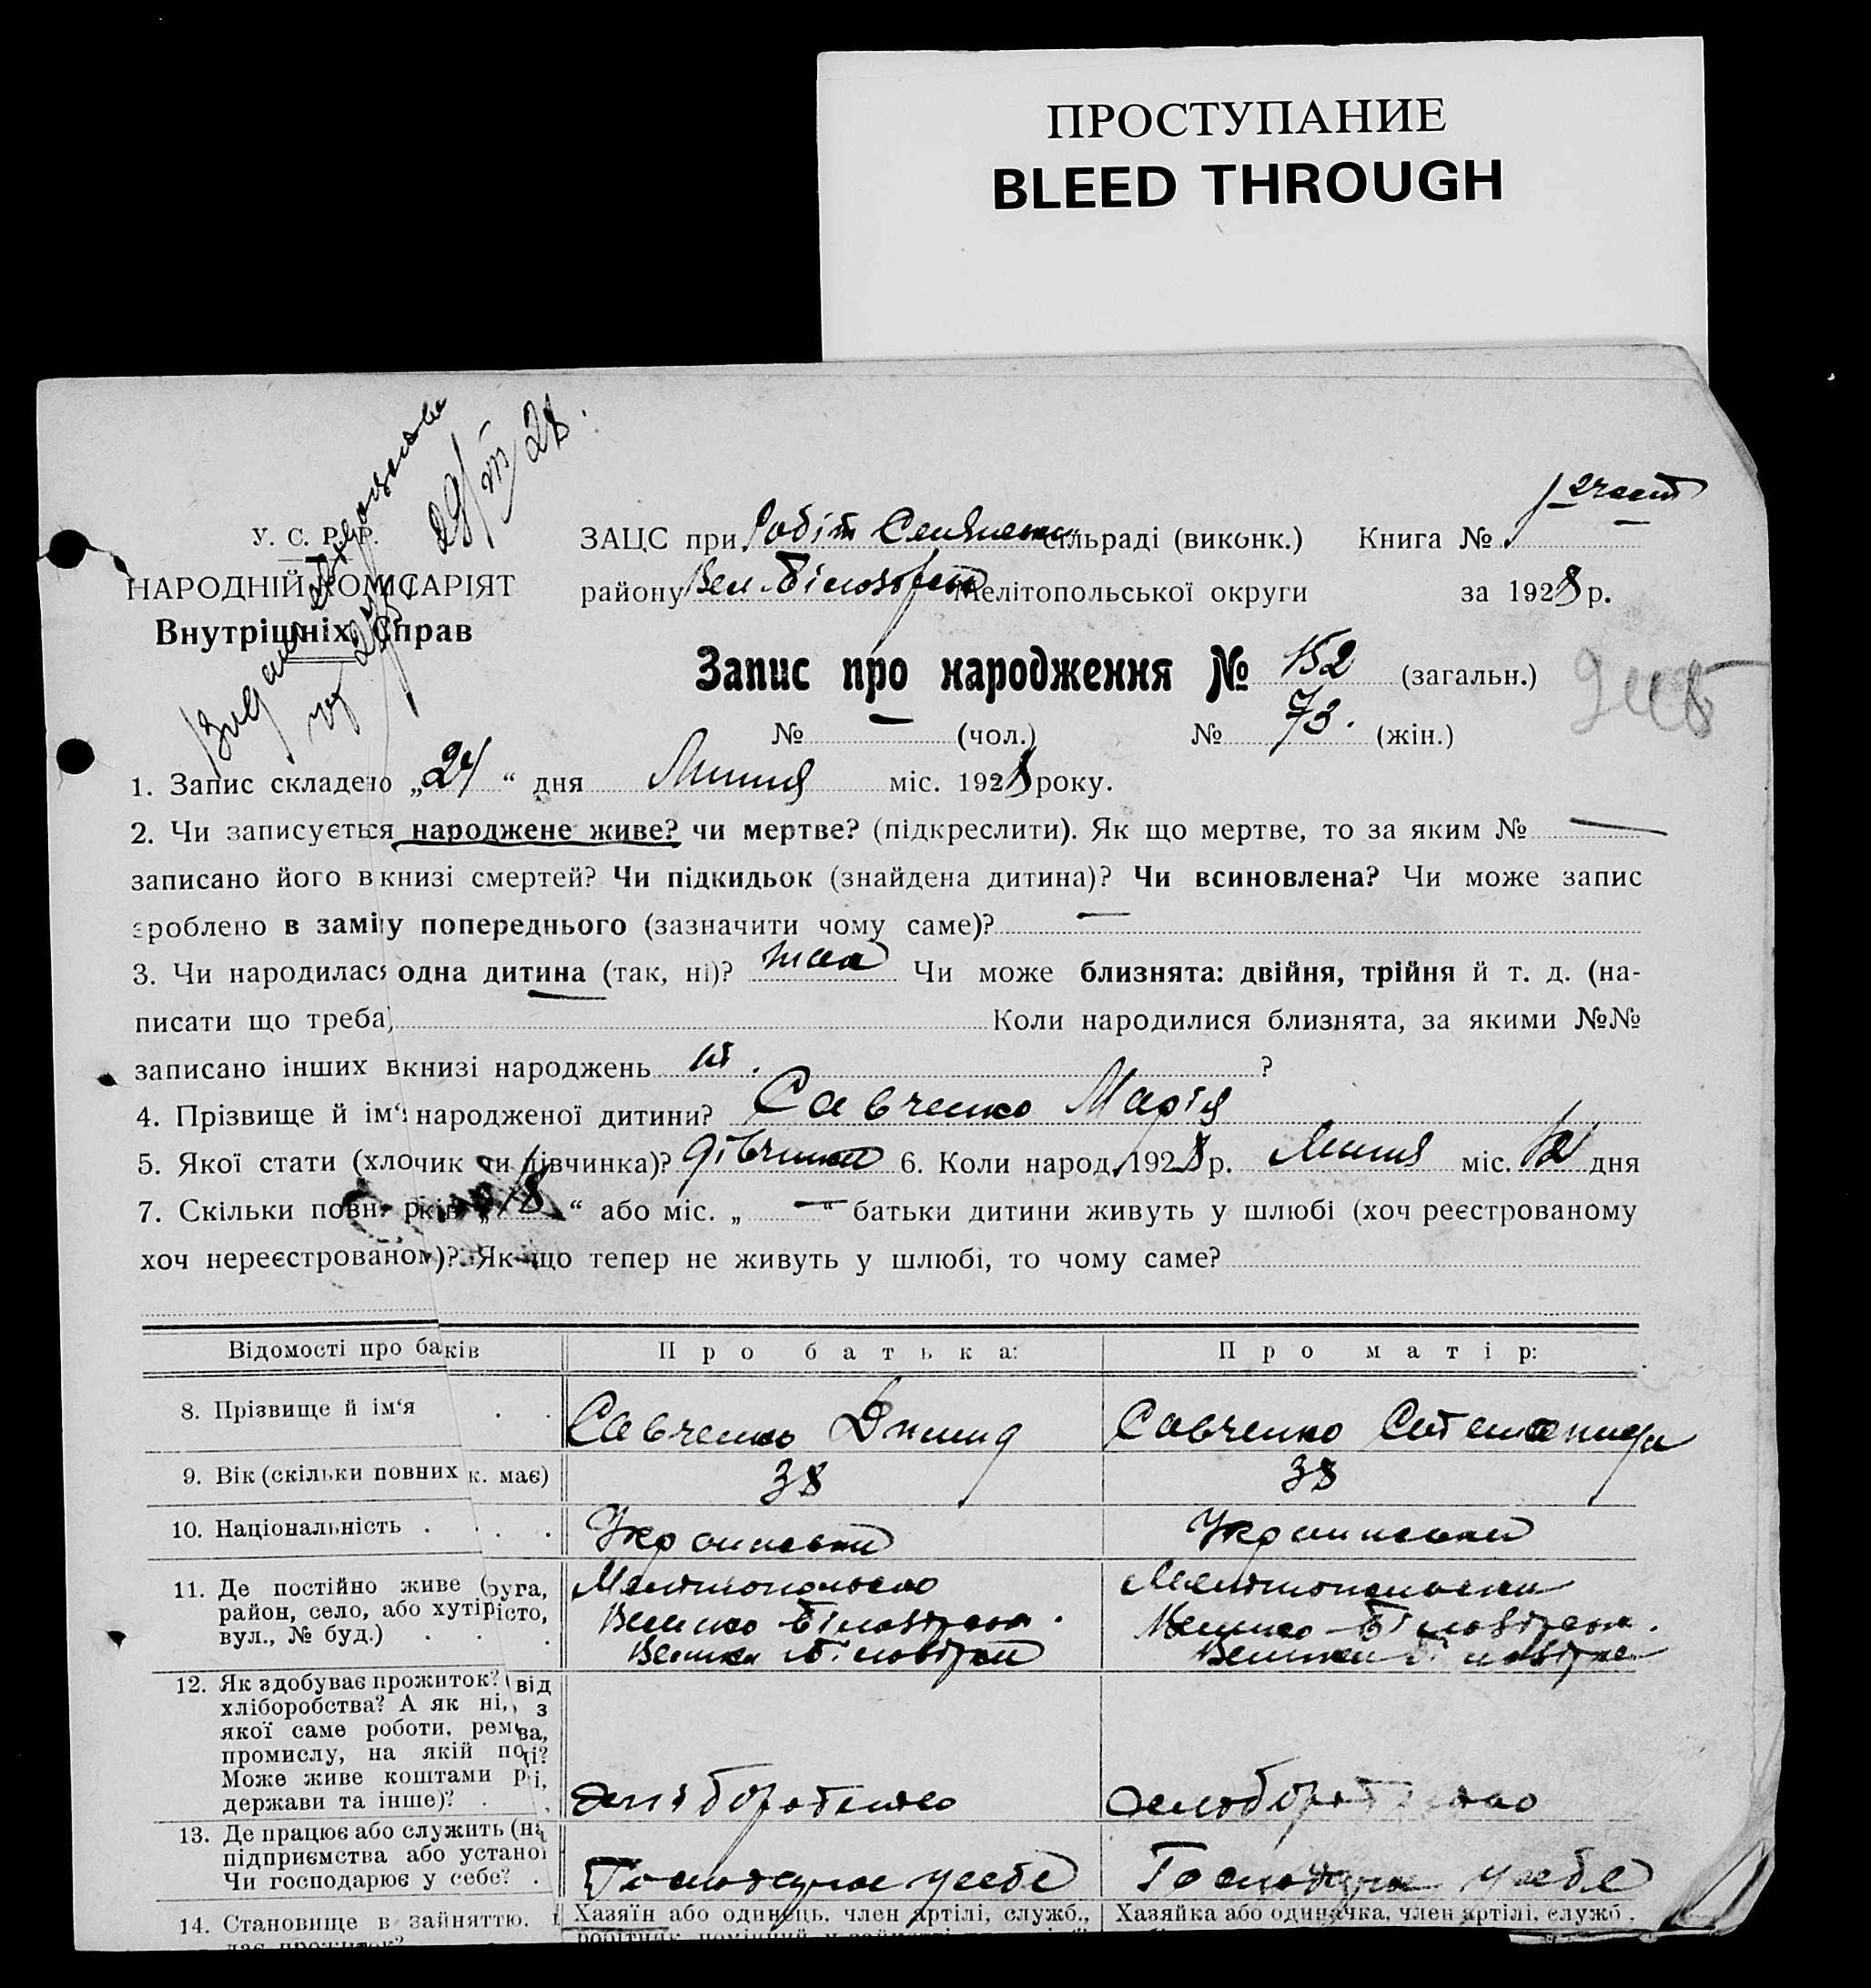 ПРОСТУПАНИЕ
BLEED THROUGH
29/VII 28.
У. С. Р. Р.
НАРОДНІЙ КОМІСАРІЯТ
Внутрішніх Справ
ЗАЦС при Робіт Селянської сільраді (виконк.) Книга №
району Вел. Білозерськ Мелітопольської округи за 1928 р.
Запис про народження № 152 (загальн.)
№ — (чол.) № 73. (жін.)
1. Запис складено „24“ дня Липня міс. 1928 року.
2. Чи записується народжене живе? чи мертве? (підкреслити). Як що мертве, то за яким № —
записано його в книзі смертей? Чи підкидьок (знайдена дитина)? Чи всиновлена? Чи може запис
зроблено в заміну попереднього (зазначити чому саме)? —
3. Чи народилася одна дитина (так, ні)? так Чи може близнята: двійня, трійня й т. д. (на-
писати що треба) Коли народилися близнята, за якими №№
записано інших в книзі народжень ні. ?
4. Прізвище й ім‘я народженої дитини? Савченко Марія
5. Якої стати (хлочик чи дівчинка)? дівчинка 6. Коли народ. 1928 р. Липня міс. 12 дня
7. Скільки повн. років „18“ або міс. „—“ батьки дитини живуть у шлюбі (хоч реєстрованому
хоч нереєстрованому)? Як що тепер не живуть у шлюбі, то чому саме?
Відомості про батьків Про батька: Про матір:
8. Прізвище й ім‘я . . Савченко Савченко Степанида
9. Вік (скільки повних р. має) 38 38
10. Національність . . . . Українська Українська
11. Де постійно живе (округа, Мелітопольська Мелітопольська
район, село, або хутір, місто, Велико Білозірська. Велико Білозірська.
вул., № буд.) . . . Велика Білозірка Велика Білозірка
12. Як здобуває прожиток? (від
хліборобства? А як ні, з
якої саме роботи, ремества,
промислу, на якій посаді?
Може живе коштами рідні,
держави та інше)? . . хліборобство хліборобство
13. Де працює або служить (на
підприємства або установі)
Чи господарює у себе? . Господарює у себе Господарює у себе
14. Становище в зайняттю. Хазяїн або одинець, член артілі, служб., Хазяйка або одиначка, член артілі, служб.,